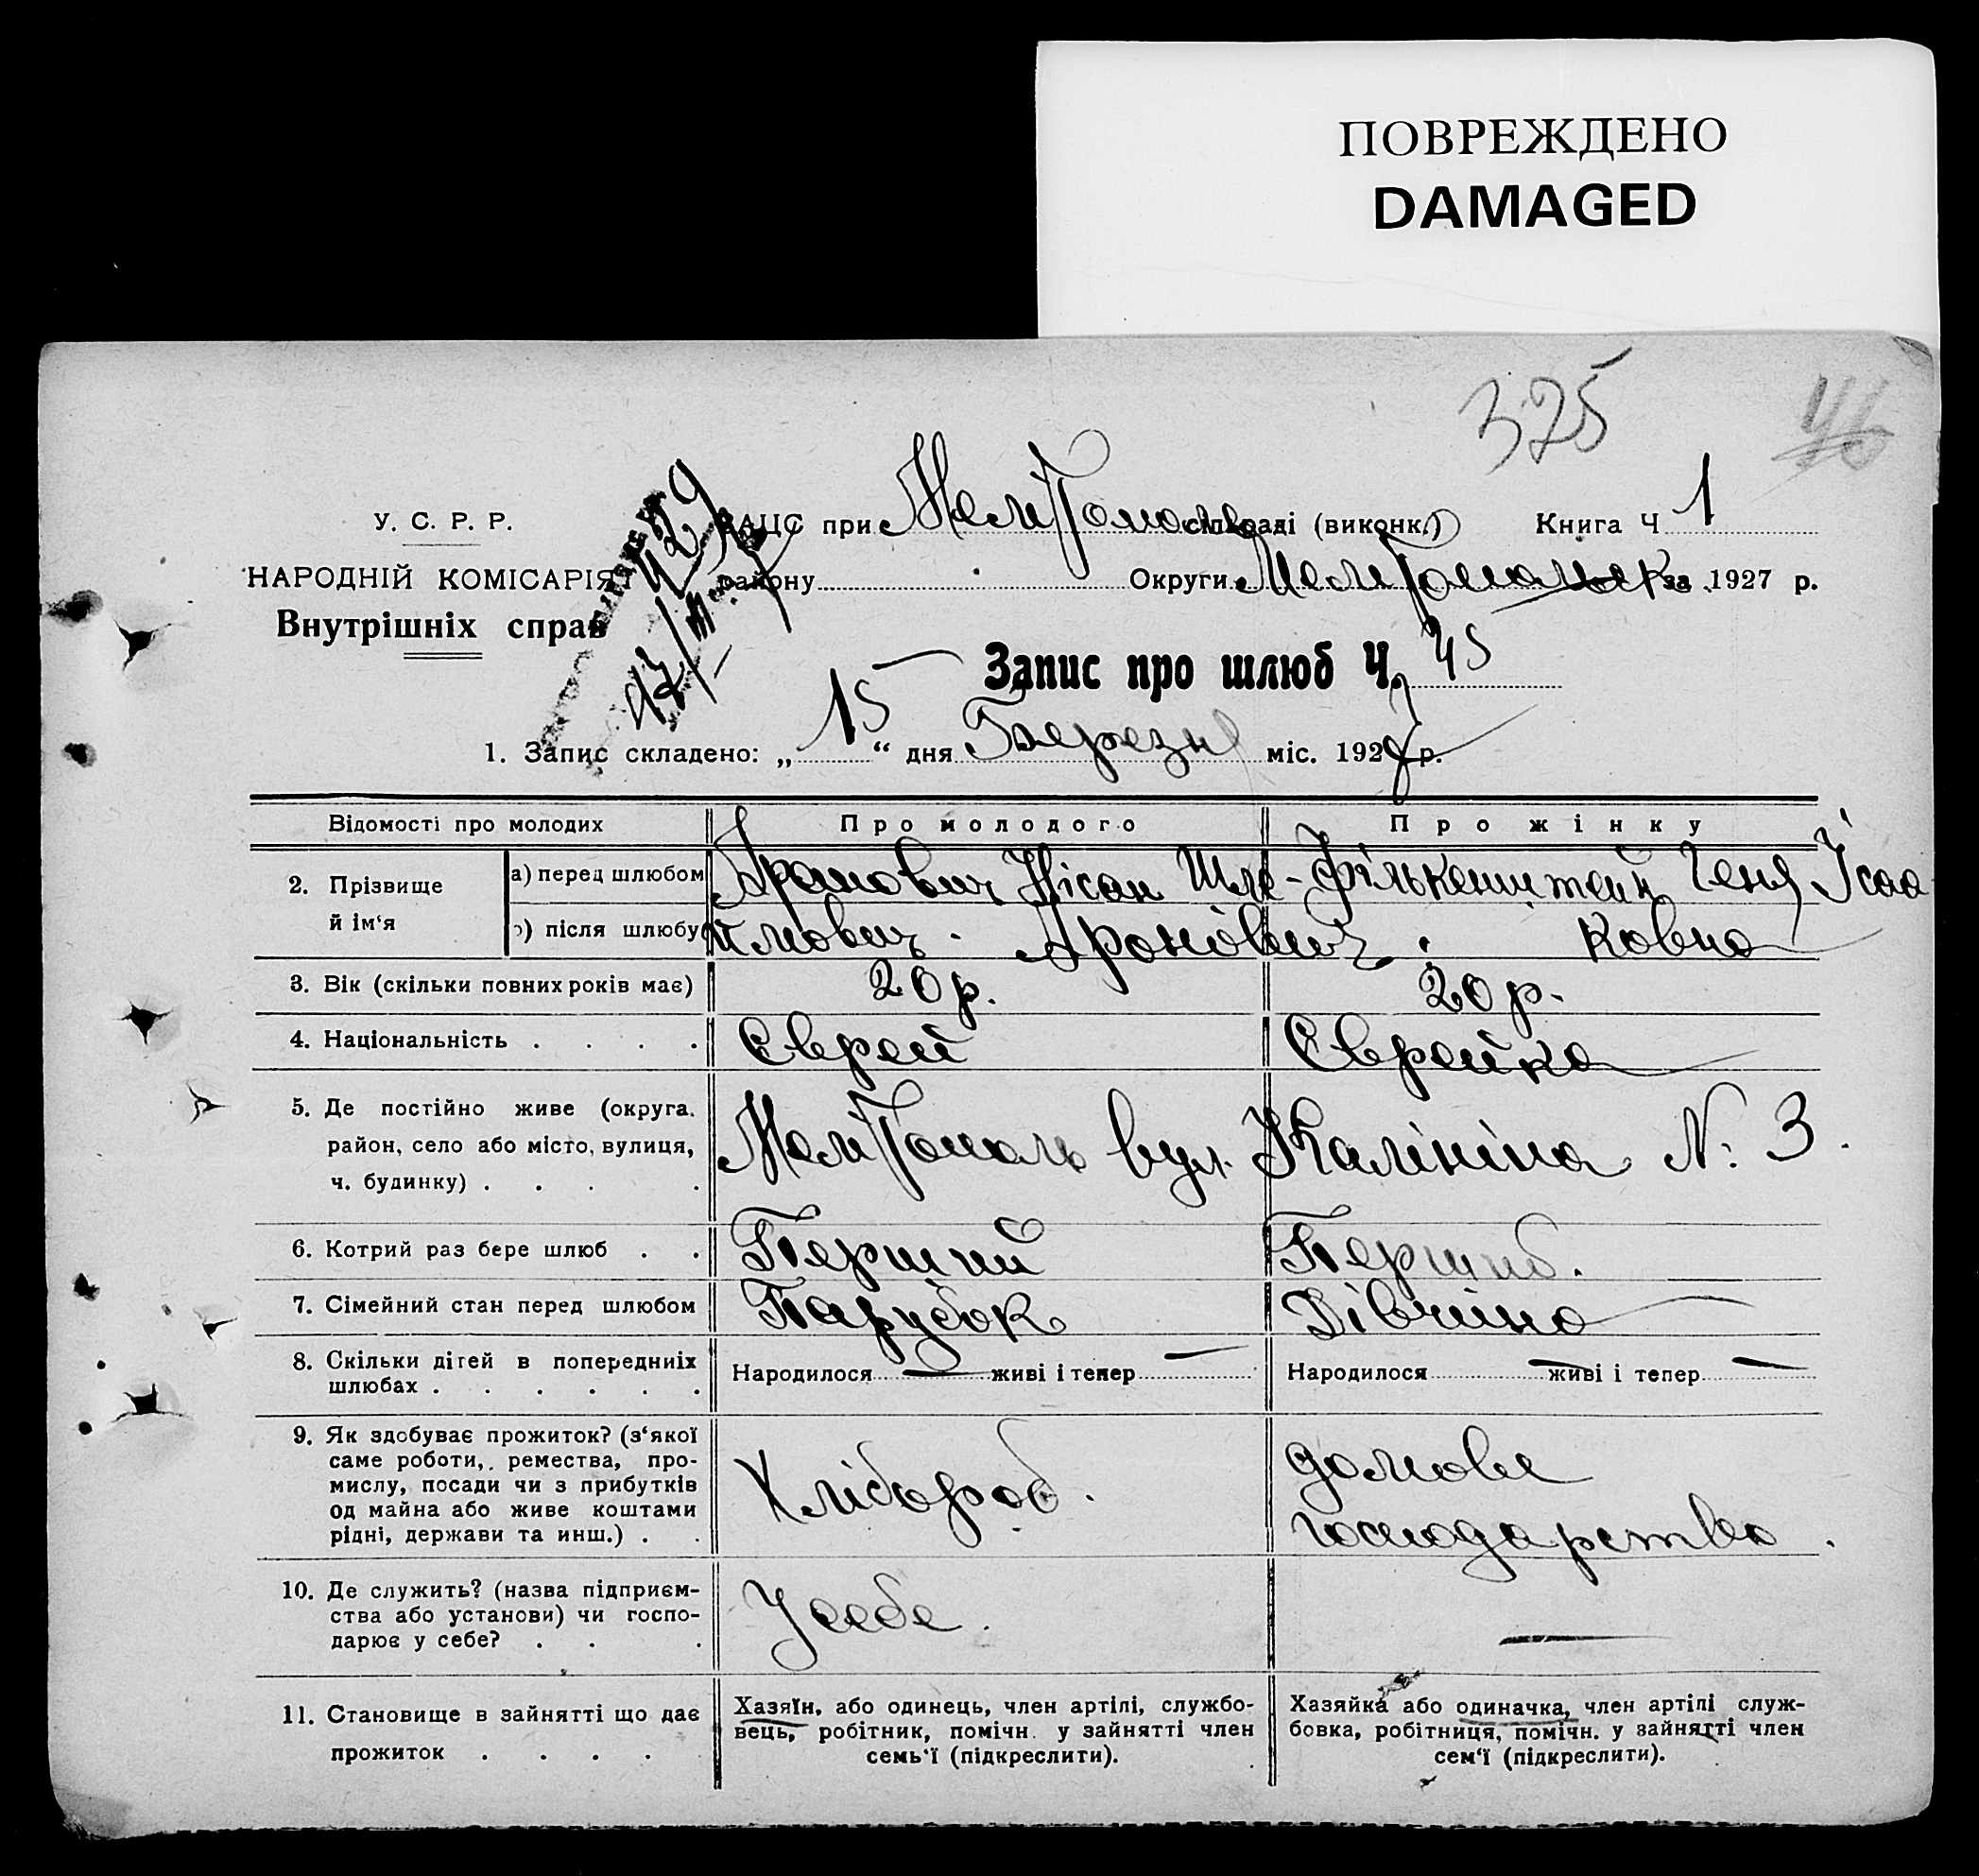 ПОВРЕЖДЕНО
DAMAGED
375
46
У. С. Р. Р.
НАРОДНІЙ КОМІСАРІЯТ
Внутрішніх справ
429
ЗАЦС при Мелітополь сільраді (виконк.) Книга Ч 1
району Округи Мелітопольск за 1927 р.
Запис про шлюб Ч. 45
1. Запис складено: „ 15 “ дня Березня міс. 1927 р.
Відомості про молодих Про молодого Про жінку
2. Прізвище й ім‘я
а) перед шлюбом Аронович Нісан Шле- Фількенштейн Геня Ісаа
б) після шлюбу ймович. Аронович. ковна
3. Вік (скільки повних років має) 20 р. 20 р.
4. Національність . . . . Єврей Єврейка
5. Де постійно живе (округа,
район, село або місто, вулиця,
ч. будинку) . . . . Мелітополь вул. Калініна № 3.
6. Котрий раз бере шлюб . . Перший Перший.
7. Сімейний стан перед шлюбом Парубок Дівчина
8. Скільки дітей в попередниіх
шлюбах . . . . . . Народилося — живі і тепер — Народилося — живі і тепер —
9. Як здобуває прожиток? (з‘якої
саме роботи, ремества, про-
мислу, посади чи з прибутків
од майна або живе коштами
рідні, держави та инш.) . .
Хлібороб.
домове
господарство.
10. Де служить? (назва підприєм-
ства або установи) чи госпо-
дарює у себе? . . .
У себе. —
11. Становище в зайнятті що дає
прожиток . . . .
Хазяїн, або одинець, член артілі, службо-
вець, робітник, помічн. у зайнятті член
семь‘ї (підкреслити).
Хазяйка або одиначка, член артілі служ-
бовка, робітниця, помічн. у зайнятті член
сем‘ї (підкреслити).